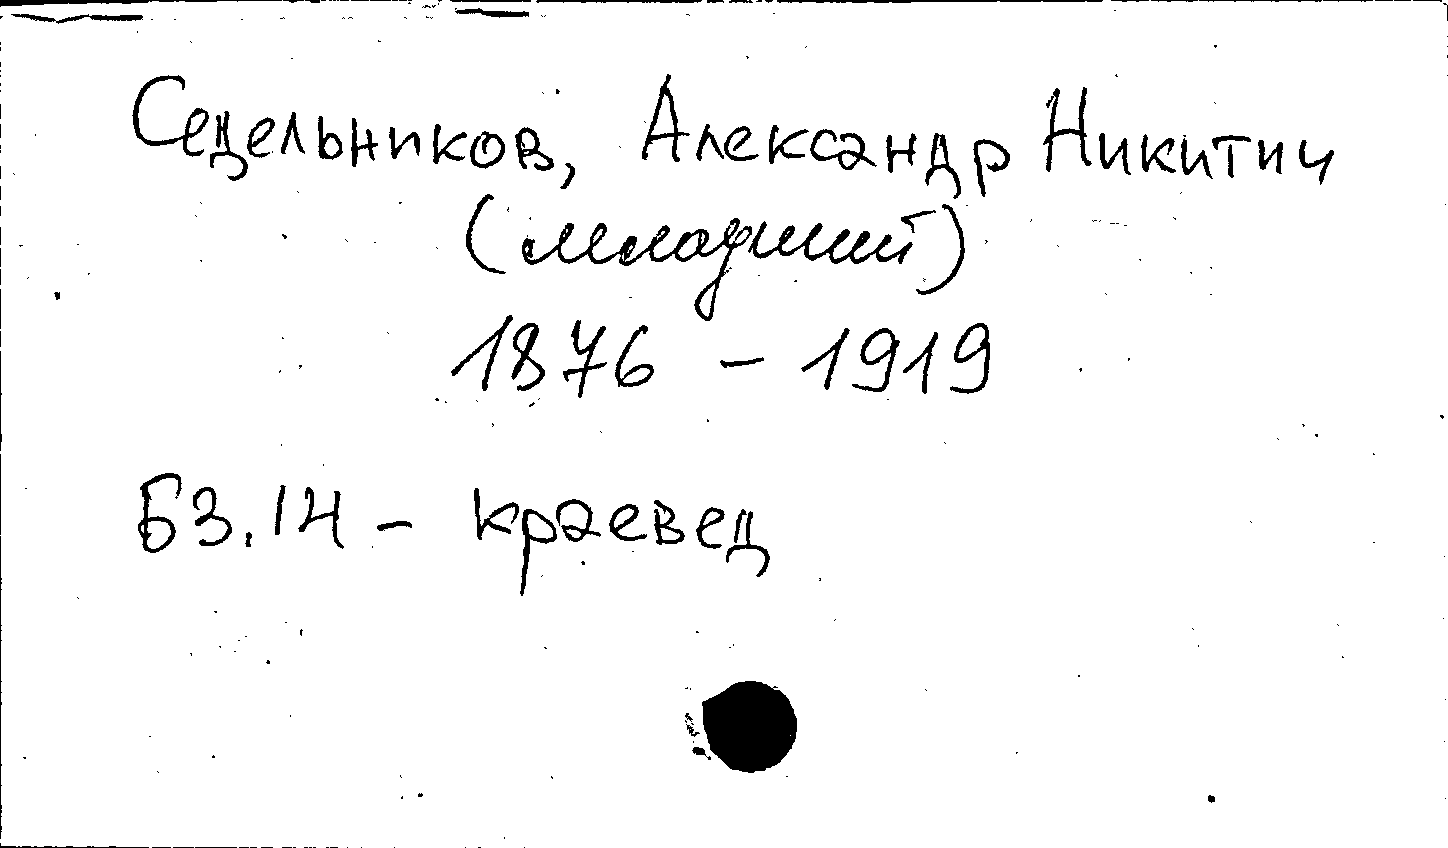 Седельников, Александр Никитич
(младший)
1876 – 1919
Б3.14 – краевед